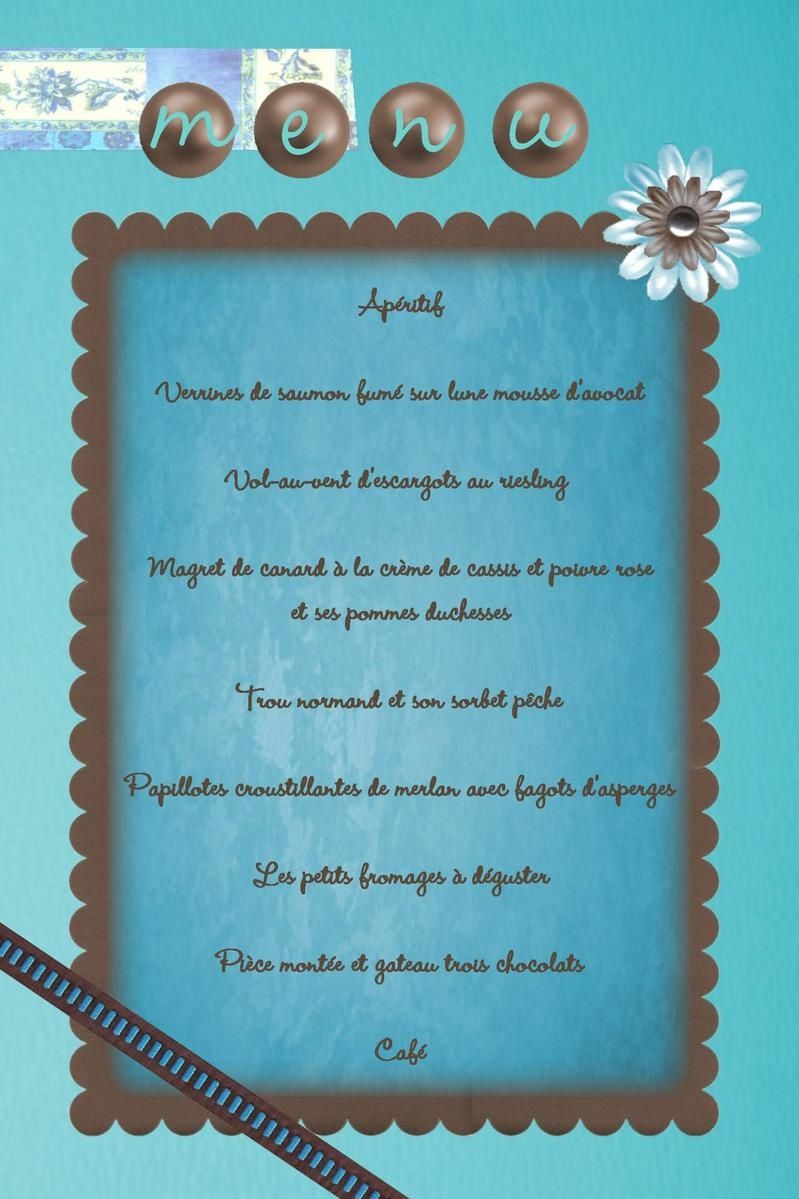 menu
Apéritif
Verrines de saumon fumé sur lune mousse d'avocat
Vol-au-vent d'escargots au riesling
Magret de canard à la crème de cassis et poivre rose
et ses pommes duchesses
Trou normand et son sorbet pêche
Papillotes croustillantes de merlan avec fagots d'asperges
Les petits fromages à déguster
Pièce montée et gateau trois chocolats
Café